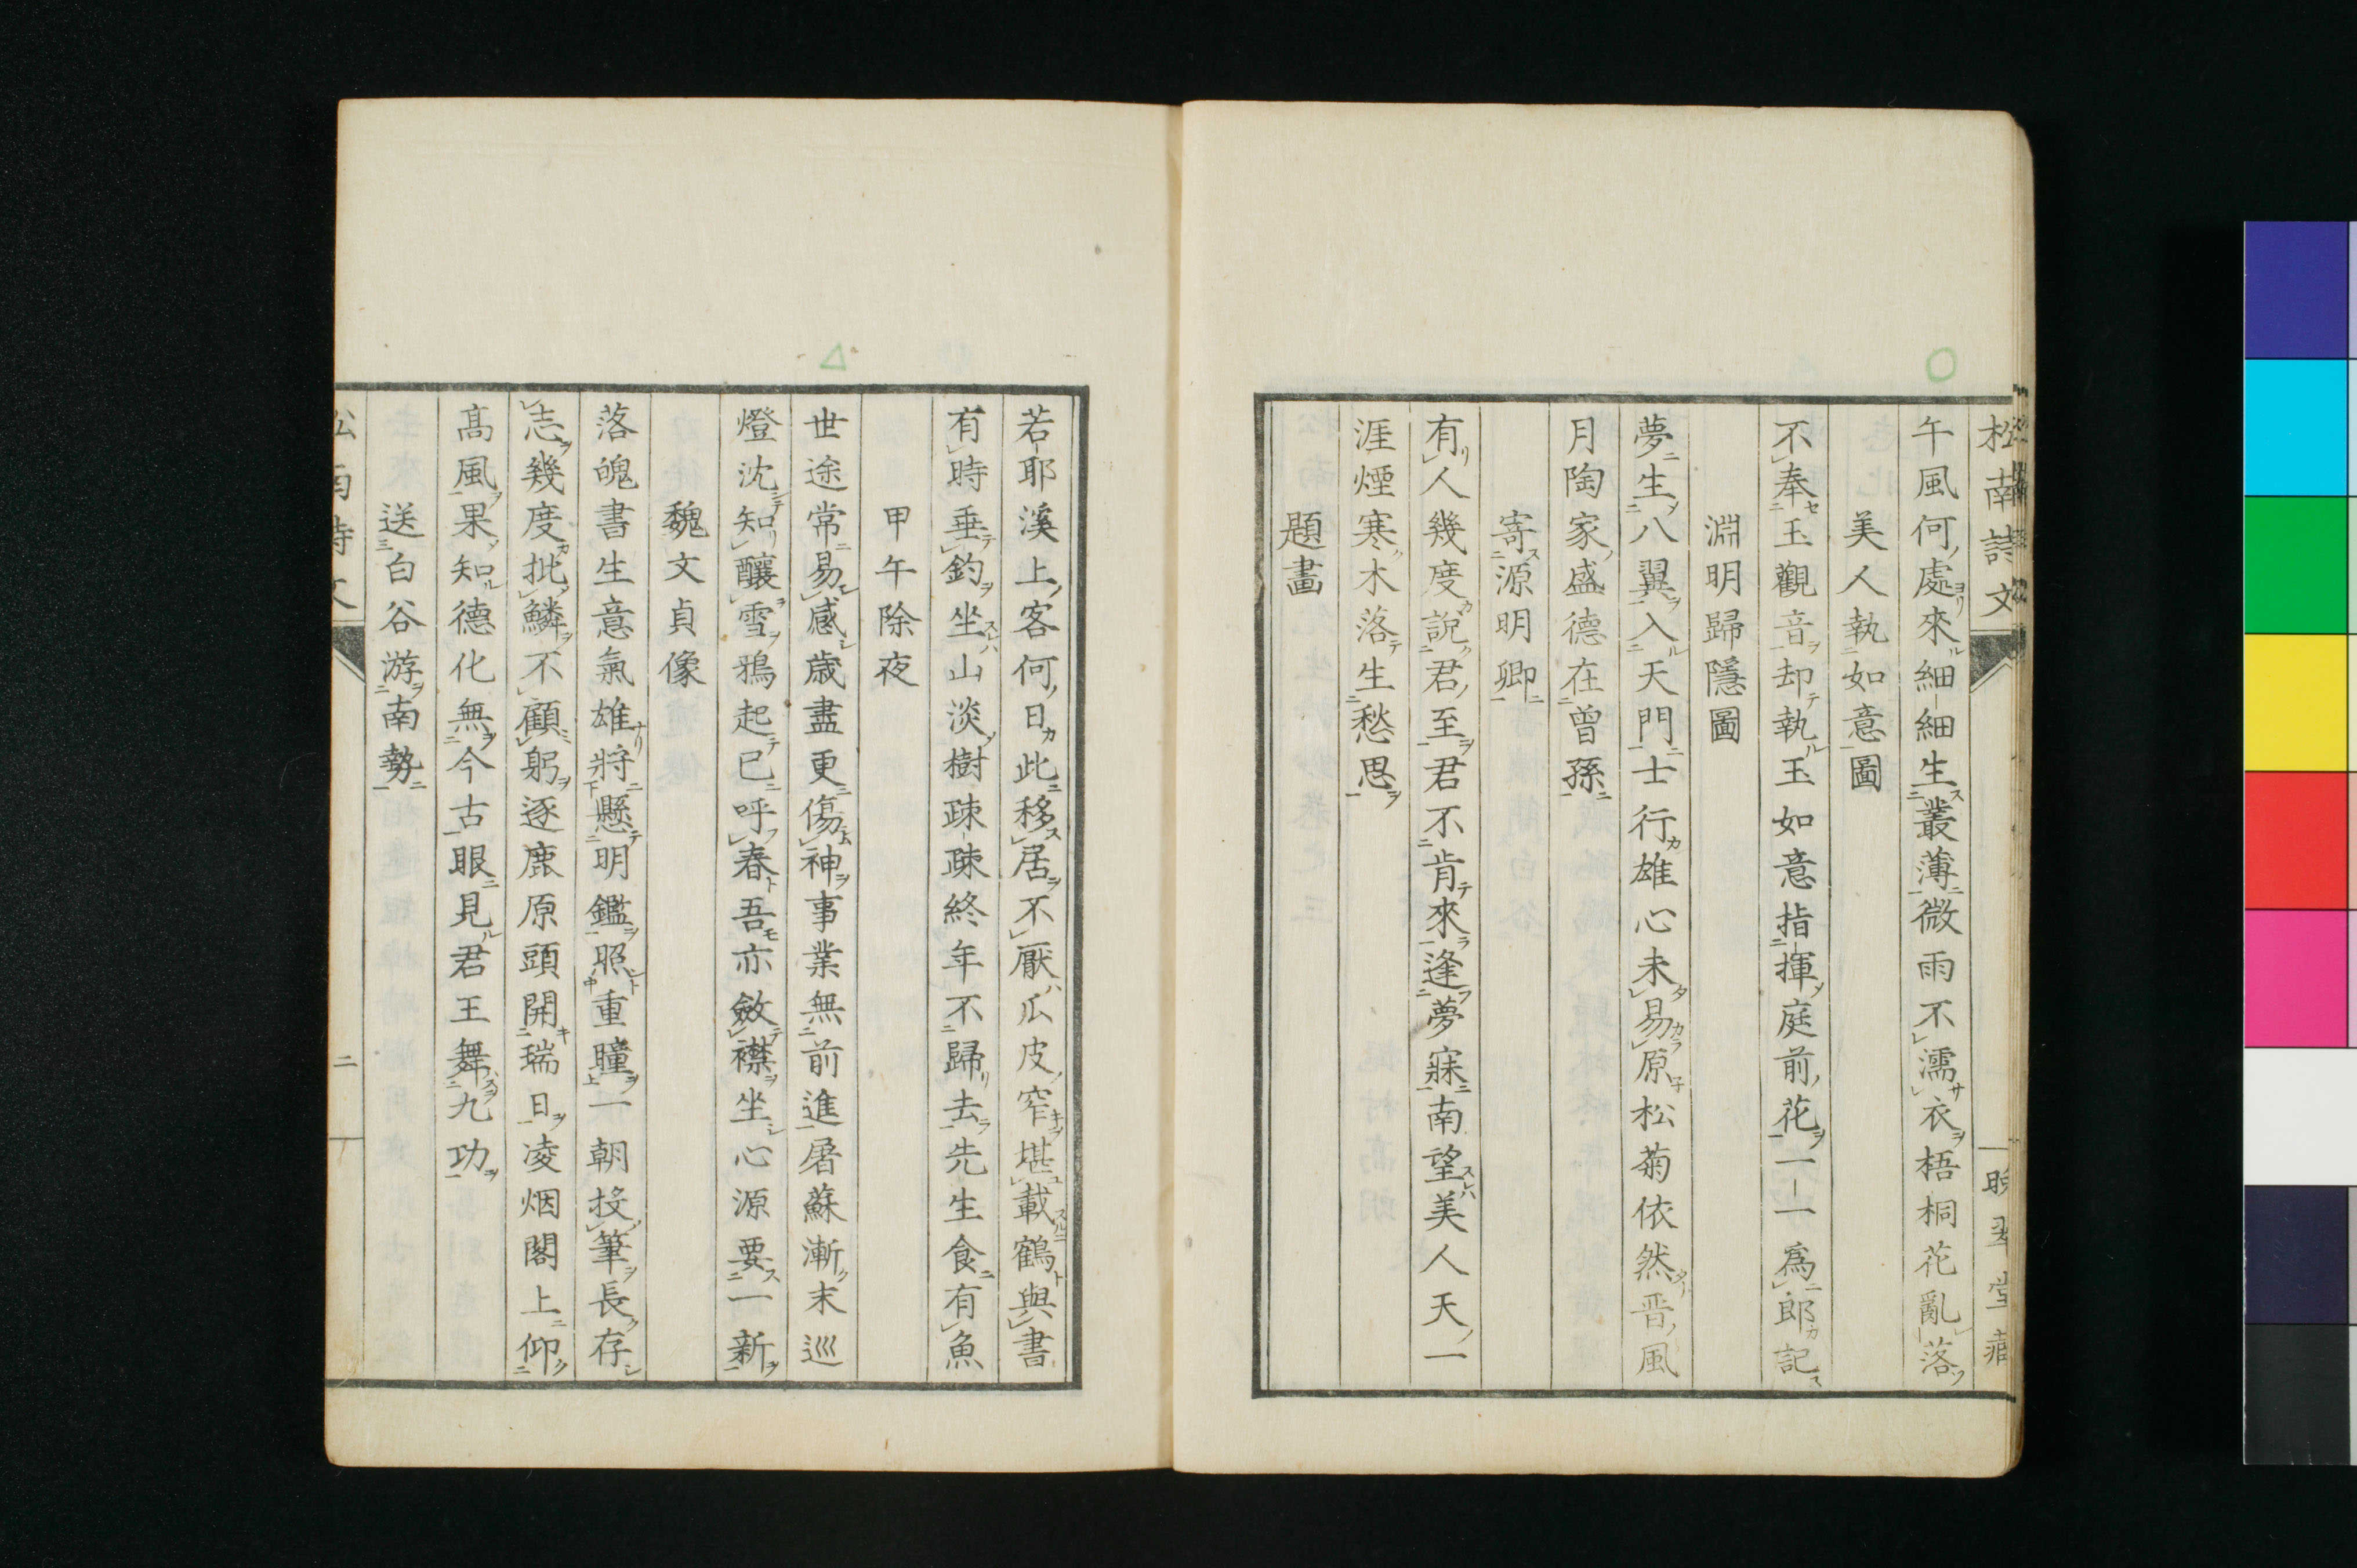 松南詩文
晩翠堂
午風何處來細細生叢薄微雨不濡衣梧桐花亂落
美人執如意圖
不奉玉觀音却執玉如意指揮庭前花一一爲郎記
淵明歸隱圖
夢生八翼入天門士行雄心未易原松菊依然晋風
月陶家盛德在曾孫
寄源明卿
有人幾度說君至君不肯來逢夢寐南望美人天一
涯煙寒木落生愁思
題畫
若耶溪上客何日此移居不厭瓜皮窄堪載鶴與書
有時垂釣坐山淡樹疎疎終年不歸去先生食有魚
甲午除夜
世途常易感歳盡更傷神事業無前進屠蘇漸末巡
燈沈知釀雪鴉起已呼春吾亦斂襟坐心源要一新
魏文貞像
落魄書生意氣雄將懸明鑑照重瞳一朝投筆長存
志幾度批鱗不顧躬逐鹿原頭開瑞日凌烟閣上仰
髙風果知德化無今古眼見君王舞九功
送白谷游南勢
松南詩文
二